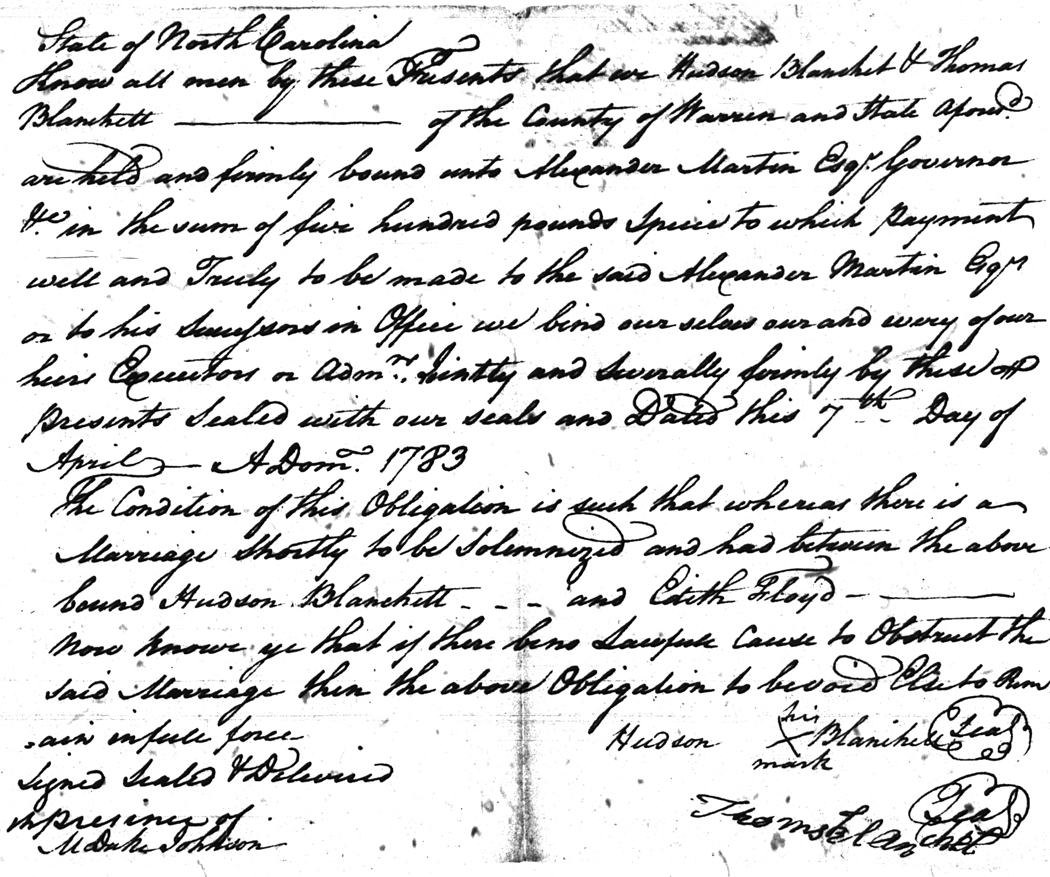 State of North Carolina
Know all men by these Presents that we Hudson Blanchet & Thomas
Blanchett of the County of Warren and State Afores.d
are held and firmly bound unto Alexander Martin Esq.r Governor
&.c in the sum of five hundred pounds Specie to which Payment
well and Truly to be made to the said Alexander Martin Esq.r
or to his Successors in Office we bind our selves our and every of our
heirs Executors or Adm.rs Jointly and Severally firmly by these
presents Sealed with our seals and Dated this 7th Day of
April A Dom. 1783
The Condition of this Obligation is such that whereas there is a
Marriage Shortly to be Solemnized and had between the above
bound Hudson Blanchett - - - and Edith Floyd -
Now Knowe ye that if there be no Lawfull Cause to Obstruct the
said Marriage then the above Obligation to be void Else to Rem
ain in full force
Hudson his X mark Blanchett Seal
Signed Sealed & Delivered
in presence of
M Duke Johnson
Thomas Blanchet Seal